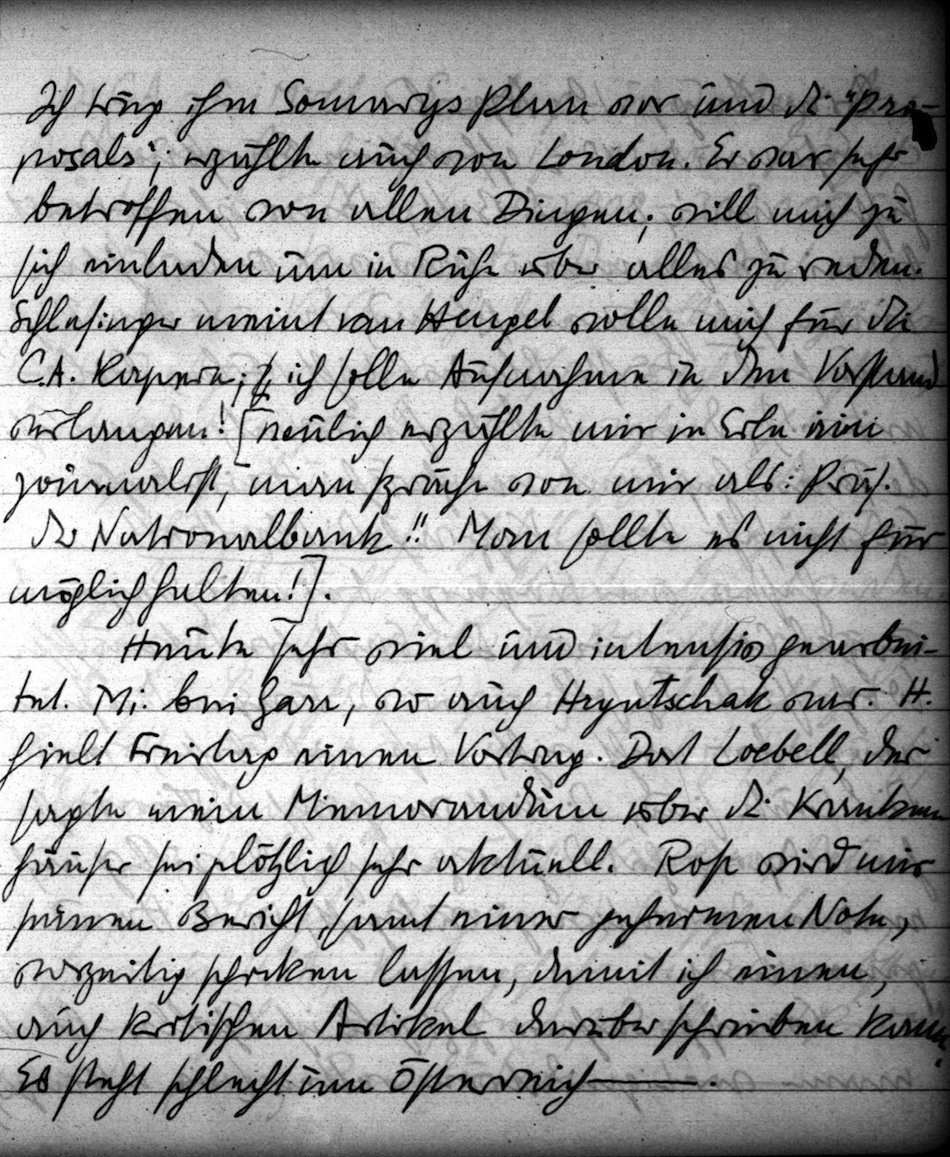 Ich trug ihm Somarys Plan vor und die "Pro-
posals"; erzählte auch von London. Er war sehr
betroffen von allen Dingen; will mich zu
sich einladen um in Ruhe über alles zu reden.
Schlesinger meint van Hengel wolle mich für die
C.A. kapern; ich solle Aufnahme in den Vorstand
verlangen! [neulich erzählte mir in Erla ein
Journalist, man spräche von mir als: Präs.
der Nationalbank!! Man sollte es nicht für
möglich halten!].
Heute sehr viel und intensiv gearbei-
tet. Mi. bei Garr, wo auch Hryntschak war. H.
hielt Freitag einen Vortrag. Dort Loebell, der
sagte mein Memorandum über die Kranken
häuser sei plötzlich sehr aktuell. Rost wird mir
seinen Bericht, samt einer geheimen Note,
vorzeitig schicken lassen, damit ich einen,
auch kritischen Artikel darüber schreiben kann.
Es steht schlecht um Österreich———.